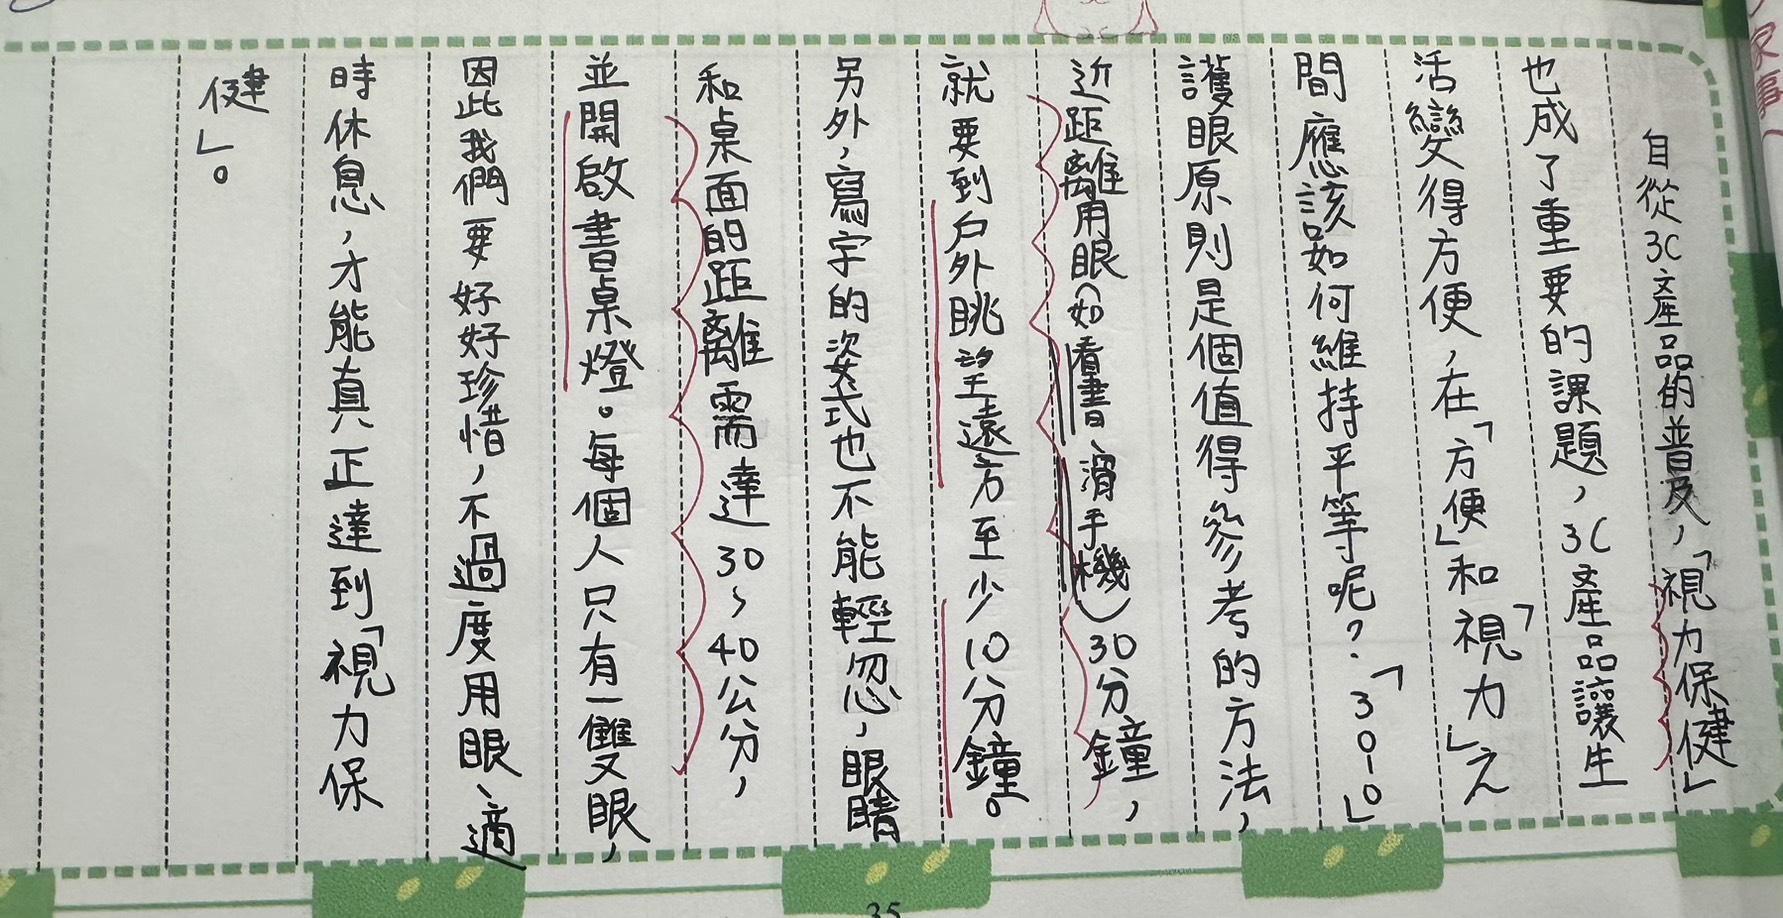 自從3C產品的普及，「視力保健」
也成了重要的課題，3C產品讓生
活變得方便，在「方便」和「視力」之
間應該如何維持平等呢？「3010」
護眼原則是個值得參考的方法，
近距離用眼（如看書、滑手機）30分鐘，
就要到戶外眺望遠方至少10分鐘。
另外，寫字的姿式也不能輕忽，眼睛
和桌面的距離需達30~40公分，
並開啟書桌燈。每個人只有一雙眼，
因此我們要好好珍惜，不過度用眼、適
時休息，才能真正達到「視力保
健」。
35